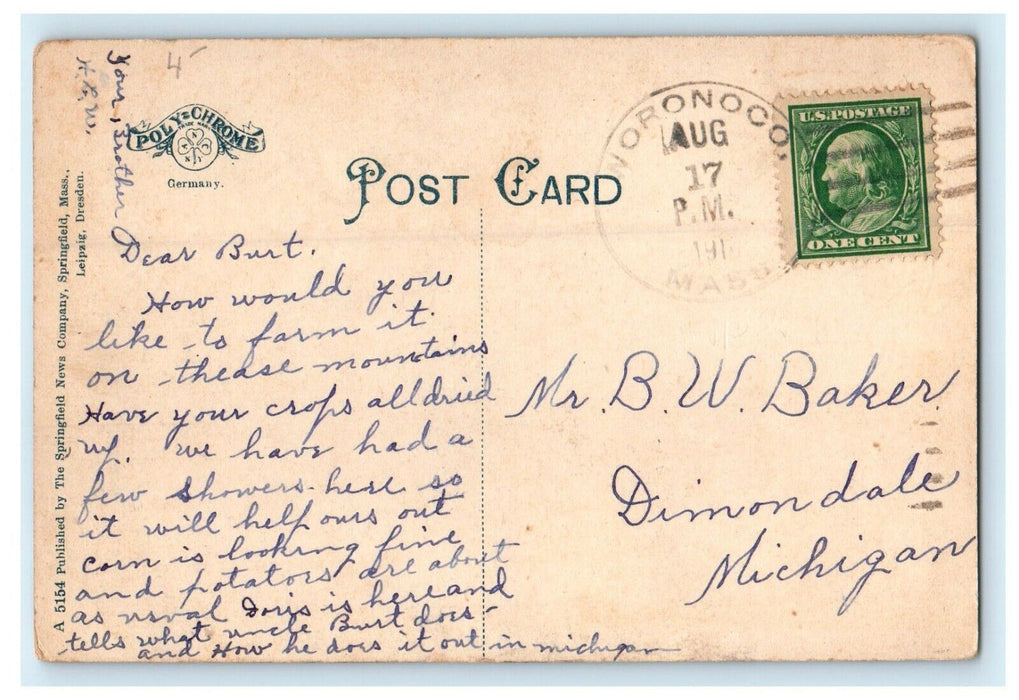 4
Your, Brother
H.E.W.
POLY=CHROME
TRADE MARK
Germany.
POST CARD
WORONOCO,
AUG
17
P.M.
191
MASS
U.S. POSTAGE
ONE CENT
A 5154 Published by The Springfield News Company, Springfield, Mass.,
Leipzig, Dresden.
Dear Burt.
How would you
like to farm it
on thease mountains
Have your crops all dried
up. we have had a
few showers here so
it will help ours out
corn is looking fine
and potatoes are about
as usual Doris is here and
tells what uncle Burt does
and How he does it out in michigan
Mr. B. W. Baker.
Dimondale
Michigan